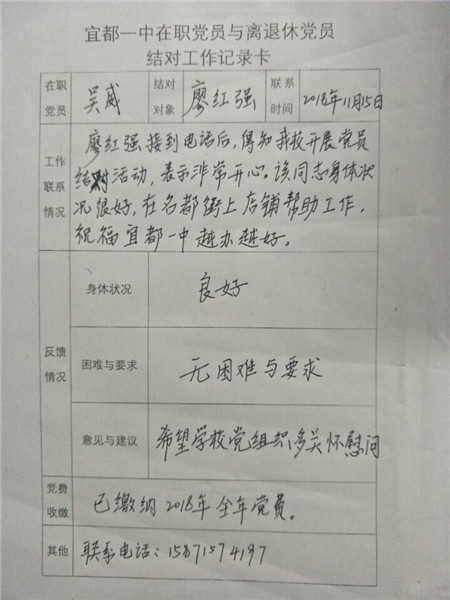 宜都一中在职党员与离退休党员
结对工作记录卡
在职党员 吴威 结对对象 廖红强 联系时间 2018年11月15日
工作联系情况
廖红强接到电话后,得知我校开展党员
结对活动,表示非常开心。该同志身体状
况很好,在名都街上店铺帮助工作,
祝福宜都一中越办越好。
反馈情况
身体状况 良好
困难与要求 无困难与要求
意见与建议 希望学校党组织多关怀慰问
党费收缴 已缴纳2018年全年党费。
其他 联系电话:15871574197